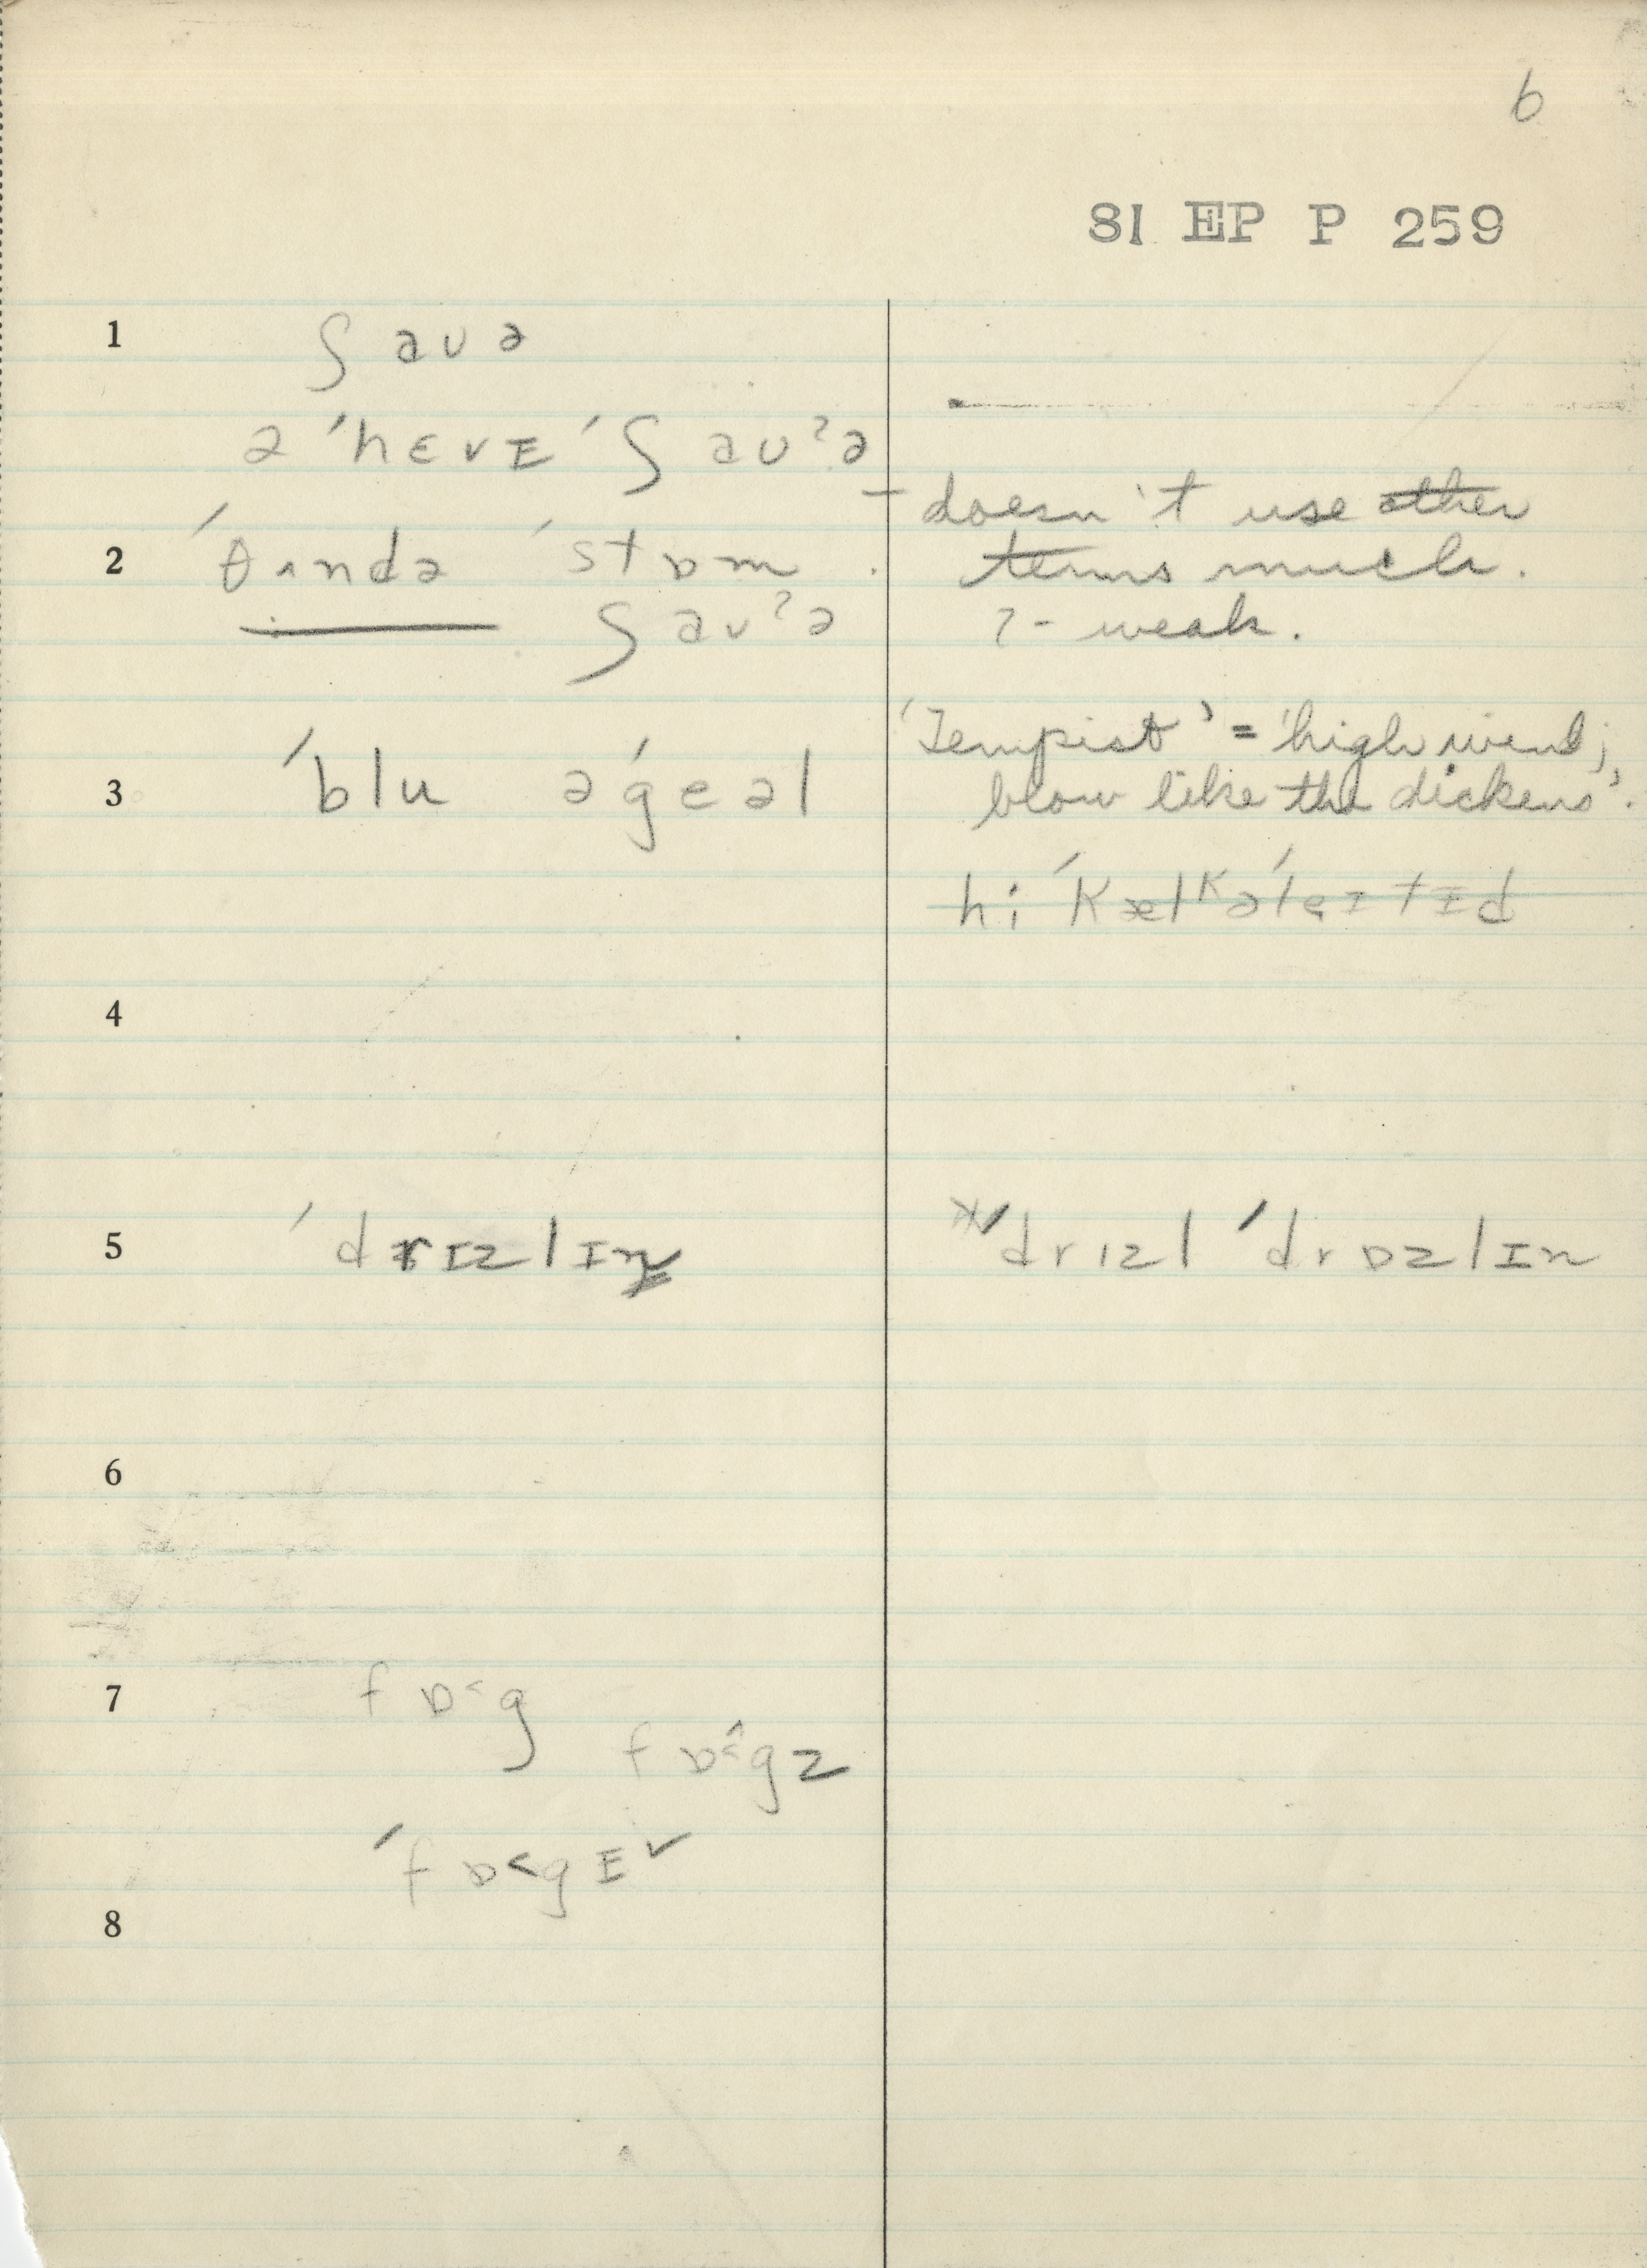 6
SI EP P 259
1 ʃ aʊ ə
ə ˈhɛvɪ ˈʃ aʊˀə
2 ˈθʌndə ˈstɒm .
— ʃ aʊˀə
– doesn't use other
terms much.
?- weak.
3 ˈblu əˈgeəl
'Tempist' = 'high wind;
blow like the dickens'.
hiˈkælkəˈleɪtɪd
4
5 ˈdrɪzlɪn
ˈdrɪzl ˈdrɒzlɪn
6
7 fɒ˂g
fɒ˂gz
ˈfɒ˂gɪ
8